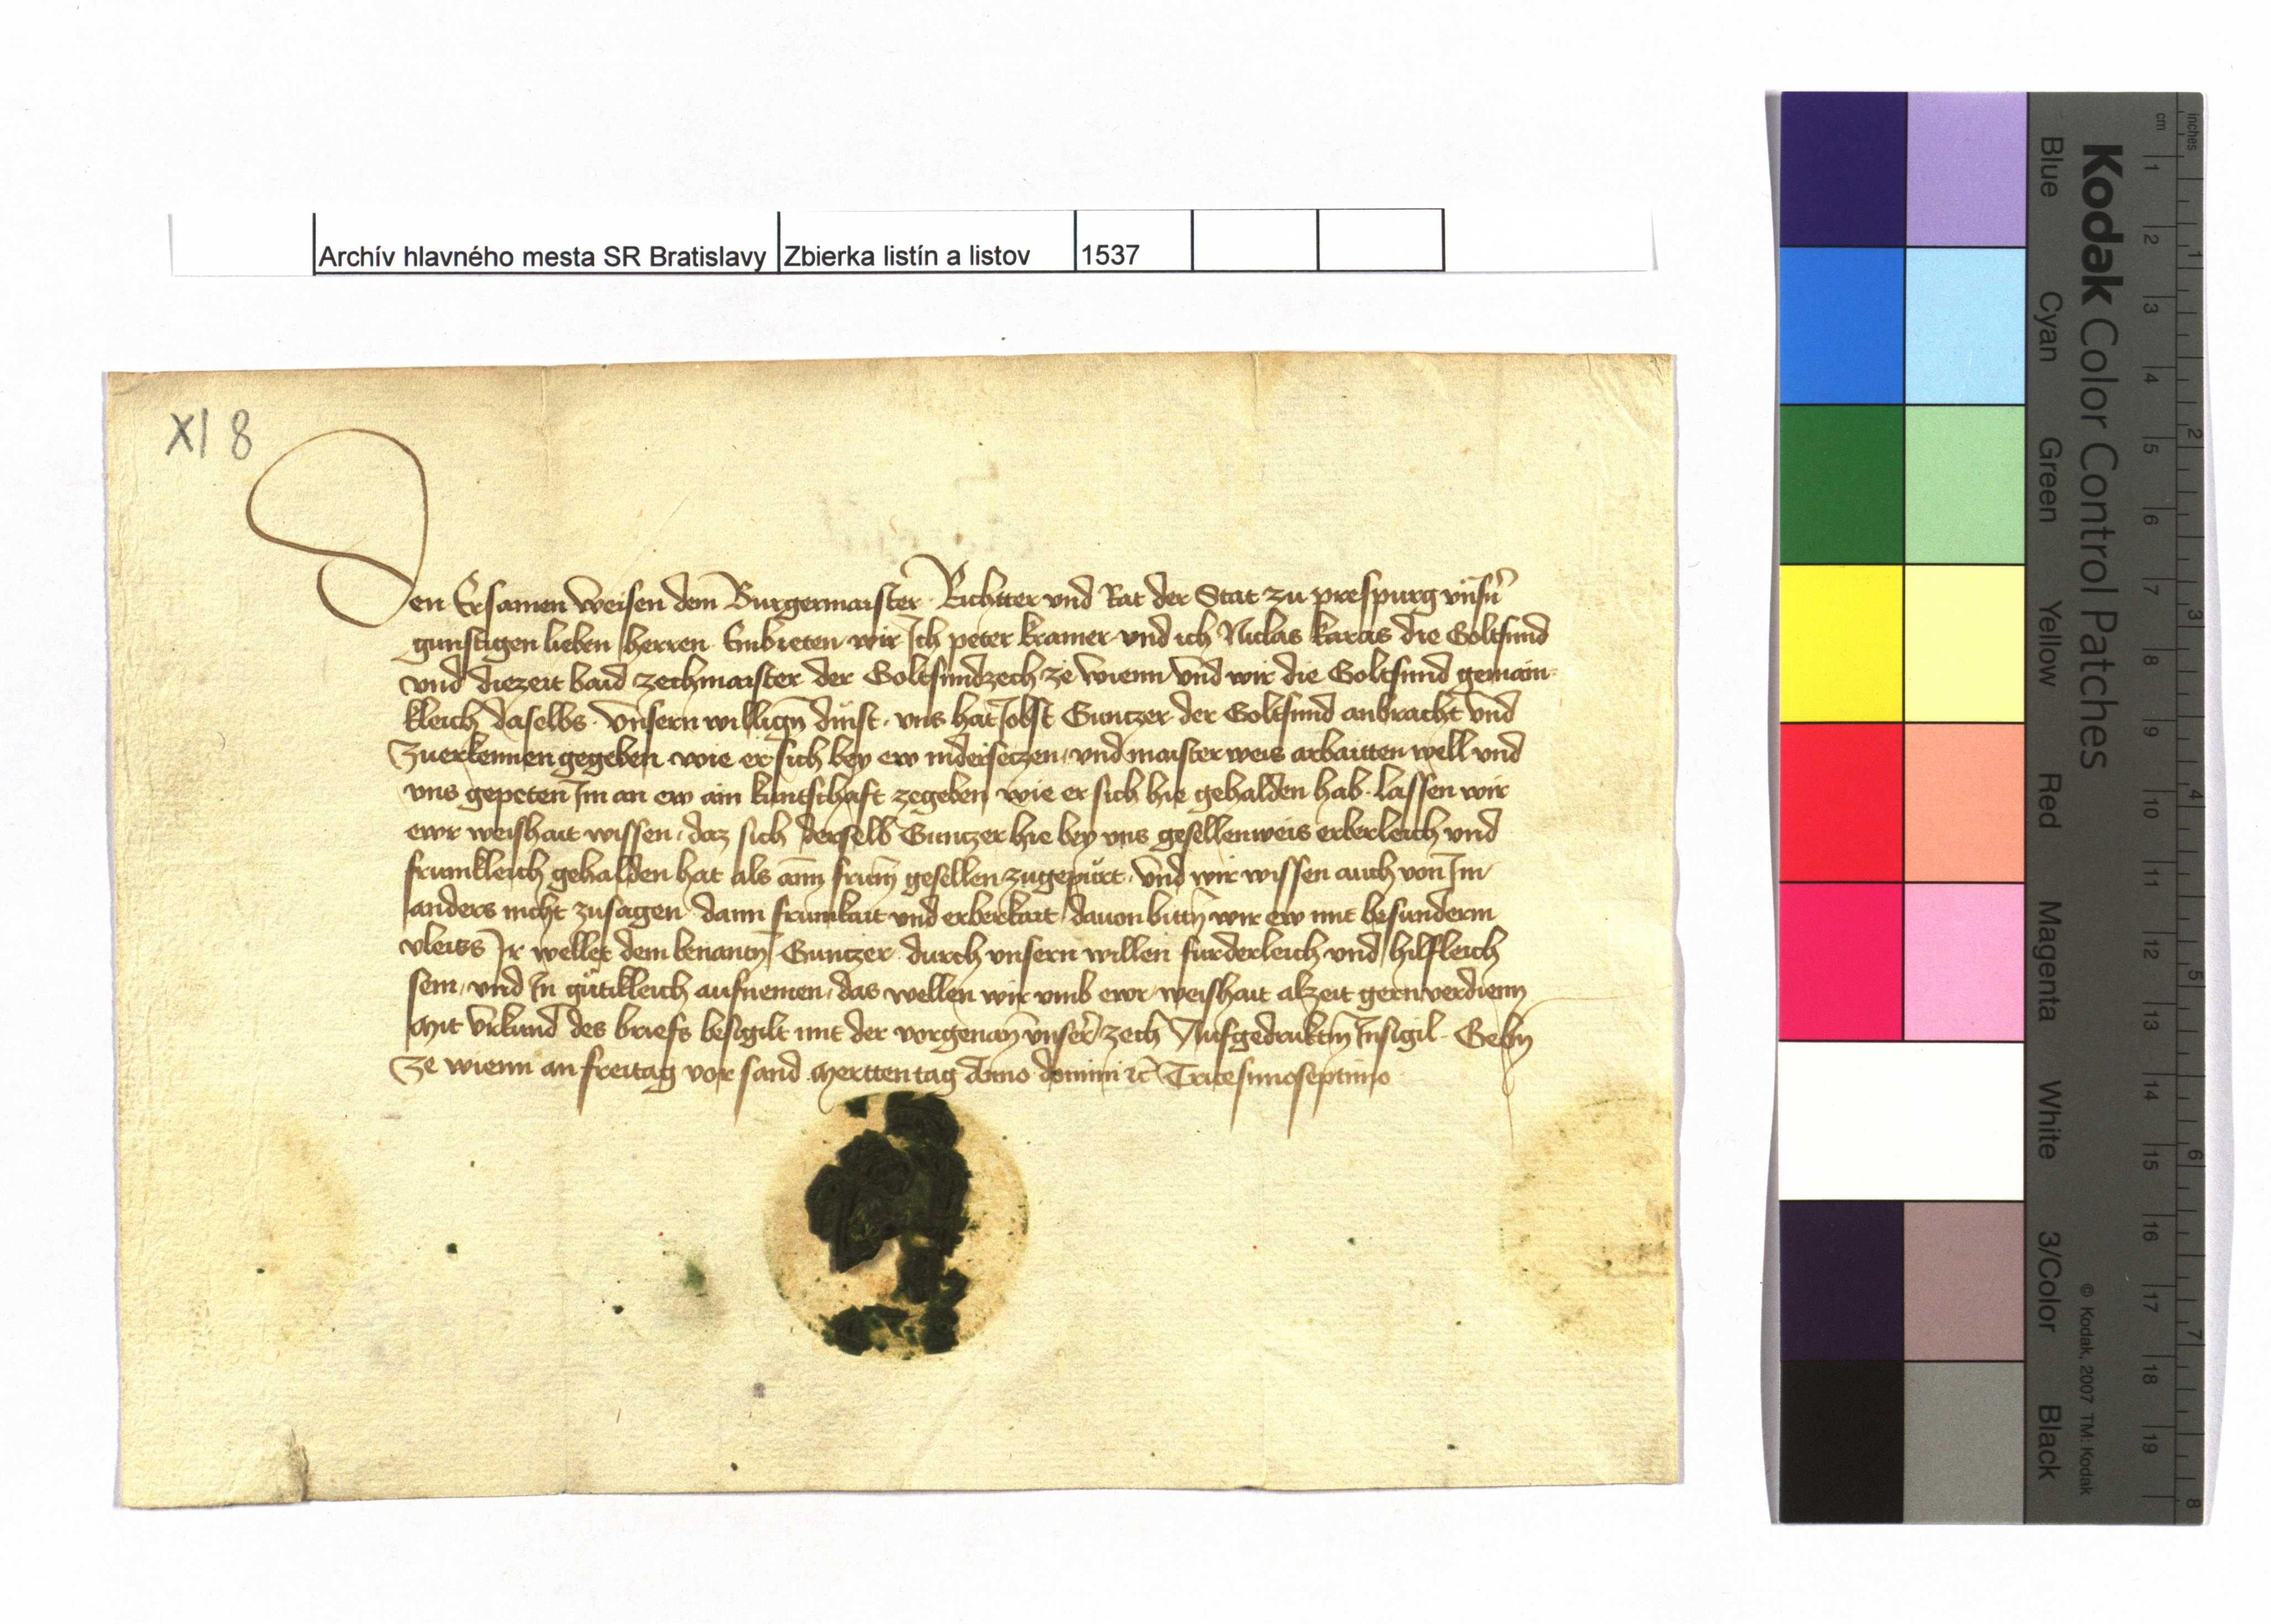 Archív hlavného mesta SR Bratislavy Zbierka listín a listov 1537
XI 8
Den Ersamen weisen dem Burgermaister Richtter vnd Rat der Stat zu prespurg vnsn̄
gunstigen lieben herren Embieten wir Ich peter kramer vnd ich Niclas karas die Goltsmid
vnd diezeit baid zechmaister der Goltsmidzech ze wienn vnd wir die Goltsmid gemain
kleich daselbs vnsern willign̄ dinst vns hat Jobst Guntzer der Goltsmid anbracht vnd
zuerkennen gegeben wie er sich bey ew nidersetzen vnd maisterweis arbaitten well vnd
vns gepeten Im an ew ain kuntschaft zegeben wie er sich hie gehalden hab lassen wir
ewr weishait wissen daz sich derselb Guntzer hie bey vns gesellenweis erberleich vnd
frumkleich gehalden hat als aim̄ frum̄ gesellen zugepurt vnd wir wissen auch von Im
anders nicht zusagen dann frumkait vnd erberkait dauon bittn̄ wir ew mit besunderm
vleiss Ir wellet dem benantn̄ Guntzer durch vnsern willen furderleich vnd hilfleich
sein vnd In gutikleich aufnemen das wellen wir vmb ewr weishait alzeit gern verdienn
Mit vrkund des briefs besigilt mit der vorgenan̄ vnser zech Aufgedruktm̄ Insigil Gebn̄
Ze wienn an freitag vor sand Merttentag Anno domini ꝛc̄ Tricesimoseptimo
Kodak Color Control Patches
Blue Cyan Green Yellow Red Magenta White 3/Color Black
© Kodak, 2007 TM: Kodak
cm 1 2 3 4 5 6 7 8 9 10 11 12 13 14 15 16 17 18 19
inches 1 2 3 4 5 6 7 8